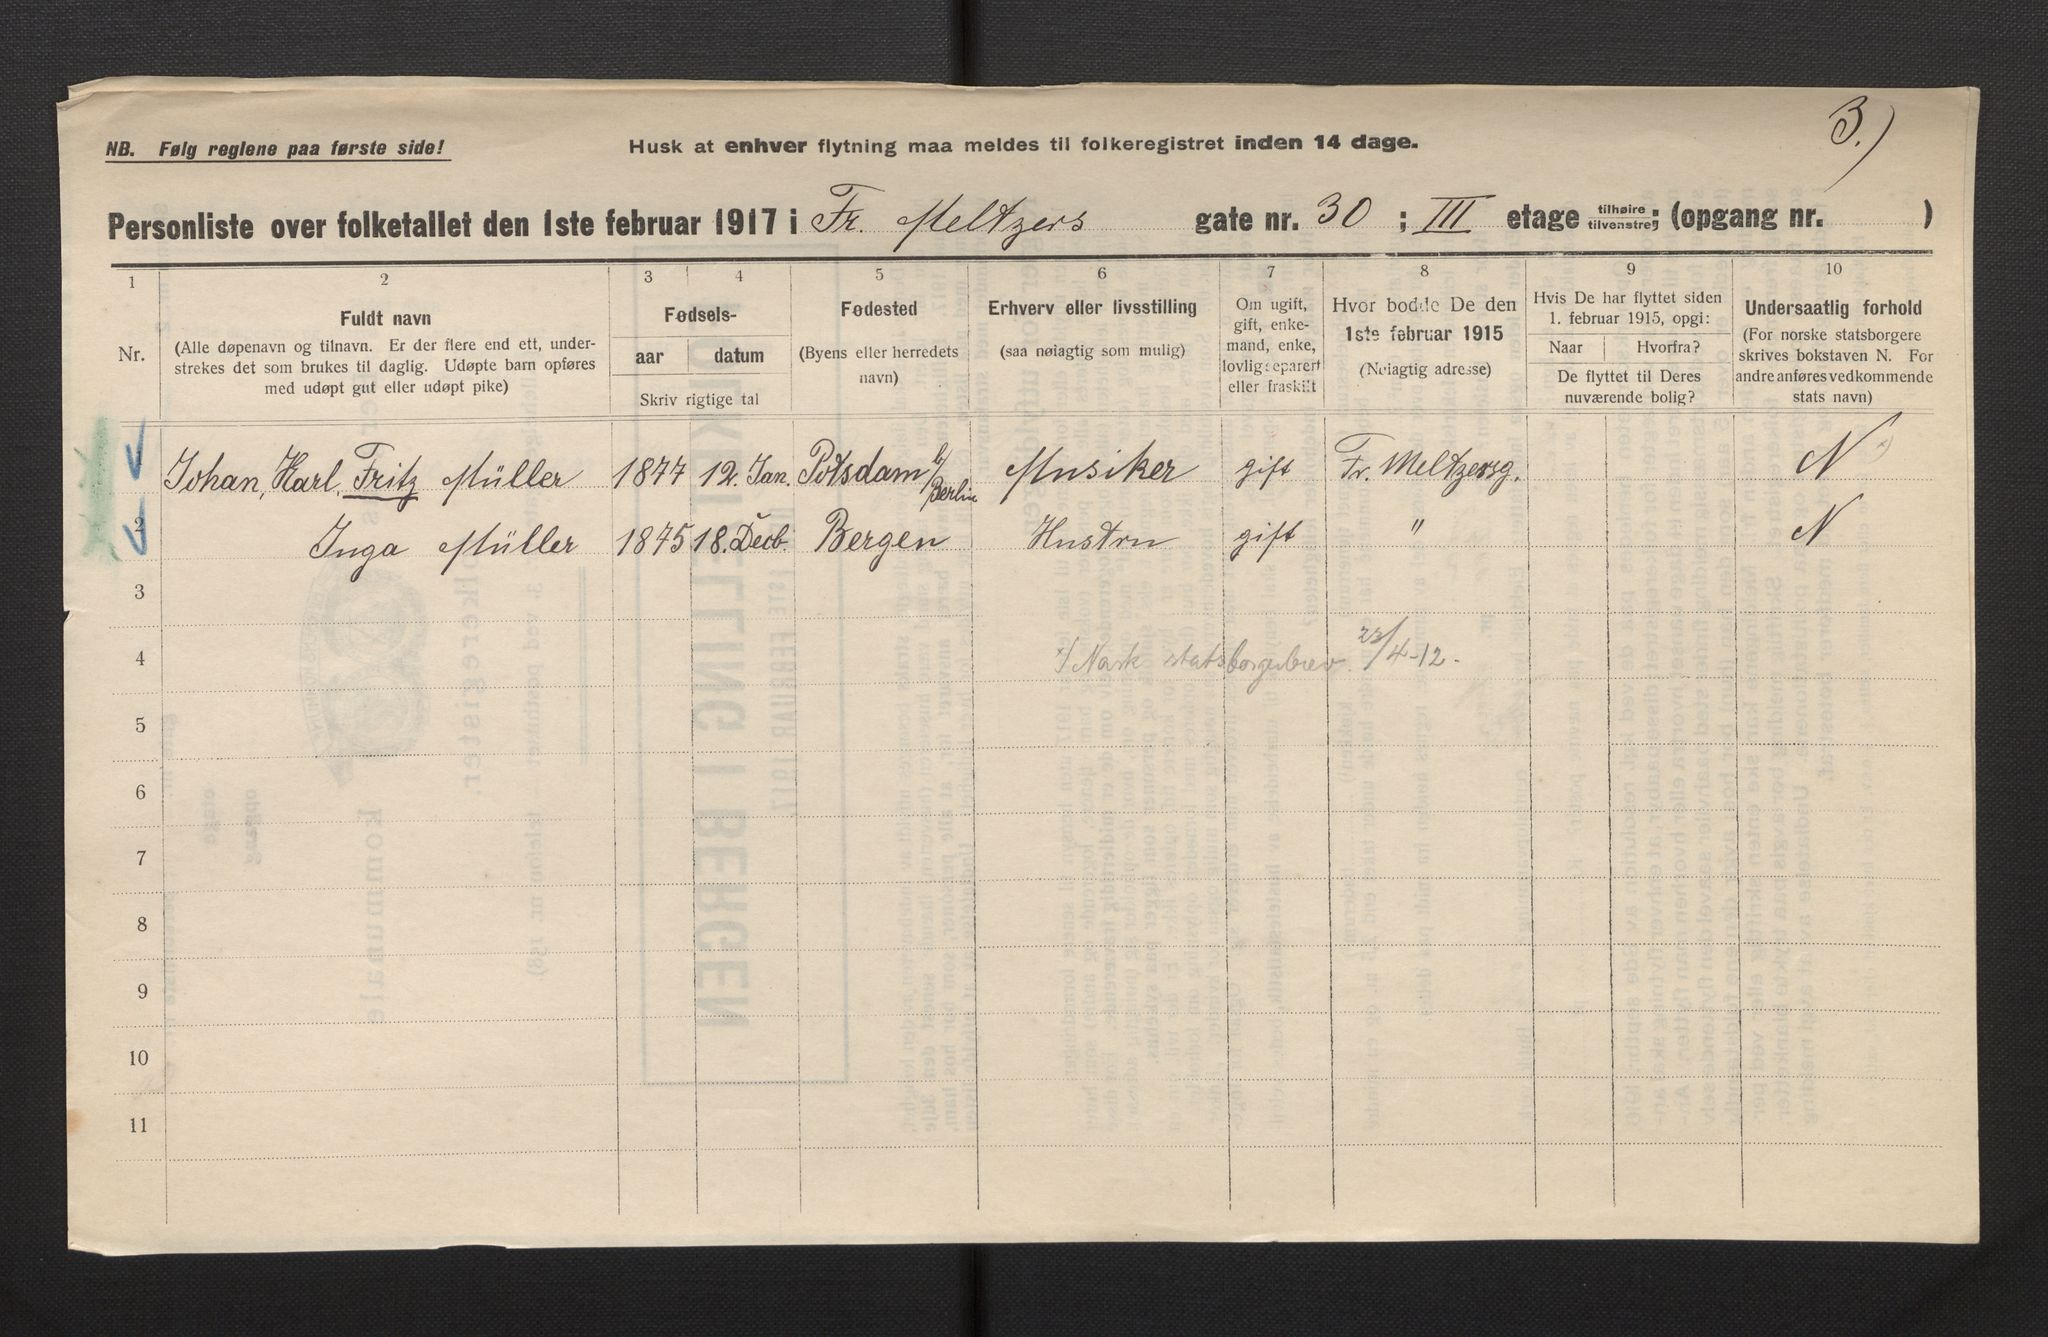 3.)
NB. Følg reglene paa første side!
Husk at enhver flytning maa meldes til folkeregistret inden 14 dage.
Personliste over folketallet den 1ste februar 1917 i Fr. Meltzers gate nr. 30 ; III etage tilhøire tilvenstre; (opgang nr. )
1 2 3 4 5 6 7 8 9 10
Nr.
Fuldt navn
(Alle døpenavn og tilnavn. Er der flere end ett, under-
strekes det som brukes til daglig. Udøpte barn opføres
med udøpt gut eller udøpt pike)
Fødsels-
aar datum
Skriv rigtige tal
Fødested
(Byens eller herredets
navn)
Erhverv eller livsstilling
(saa nøiagtig som mulig)
Om ugift,
gift, enke-
mand, enke,
lovlig separert
eller fraskilt
Hvor bodde De den
1ste februar 1915
(Nøiagtig adresse)
Hvis De har flyttet siden
1. februar 1915, opgi:
Naar Hvorfra?
De flyttet til Deres
nuværende bolig?
Undersaatlig forhold
(For norske statsborgere
skrives bokstaven N. For
andre anføres vedkommende
stats navn)
Johan, Karl, Fritz Müller 1877 12. Jan. Potsdam b/ Berlin Musiker gift Fr. Meltzersg. N x)
2 Inga Müller 1875 18. Decb. Bergen Hustru gift " N
3
4 x) Norsk statsborgerbrev 23/4-12.
5
6
7
8
9
10
11